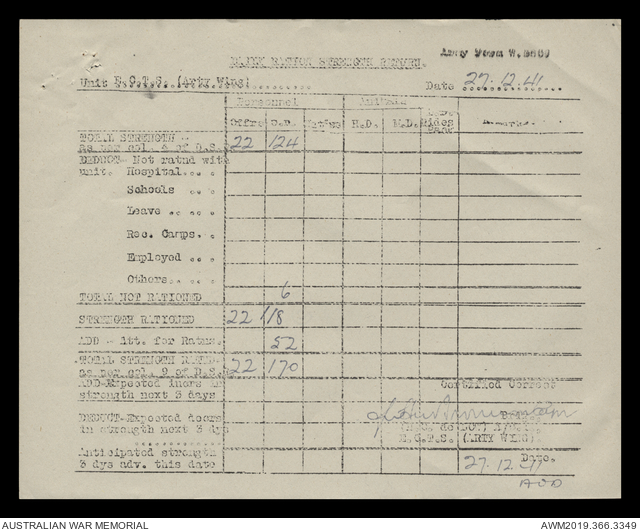 DAILY RATION STRENGTH RETURN.
Army Form W.
Unit E.C.T.S. (Arty Wing)
Date 27.12.41
Personnel Animals
Offrs O.R. Native H.D. M.D. Remarks
TOTAL STRENGTH
as per col. of D.S. 22 124
DEDUCT- Not ratnd with
unit. Hospital.
Schools
Leave
Rec. Camps.
Employed
Others.
TOTAL NOT RATIONED 6
STRENGTH RATIONED 22 118
ADD - Att. for Ratns. 52
TOTAL STRENGTH 22 170
as per col. 9 of D.S.
ADD-Expected incrs in
strength next 3 days
Certified Correct
DEDUCT-Expected decrs
in strength next 3 dys
E.C.T.S. (ARTY WING)
Anticipated strength
3 dys adv. this date
Date.
27.12.41
AUSTRALIAN WAR MEMORIAL
AWM2019.366.3349